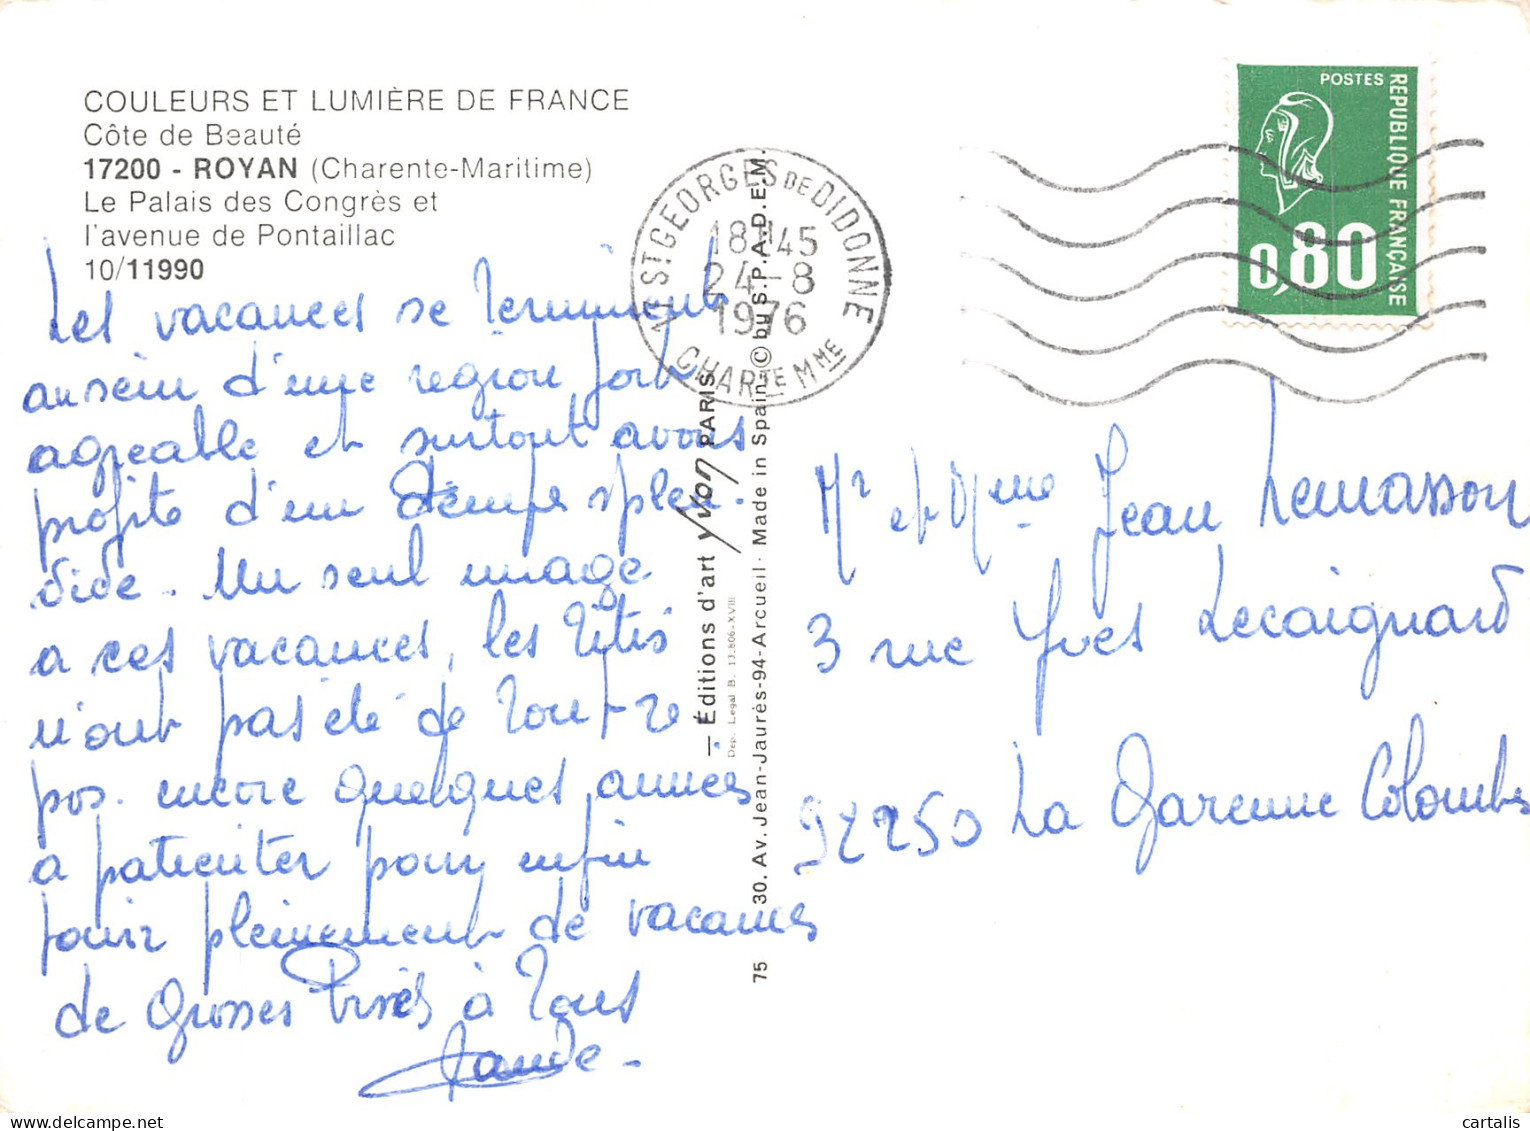 COULEURS ET LUMIÈRE DE FRANCE
Côte de Beauté
17200 - ROYAN (Charente-Maritime)
Le Palais des Congrès et
l'avenue de Pontaillac
10/11990
Les vacances se terminent
au sein d'une region fort
agreable et surtout avons
profite d'un temps splen-
dide. Un seul nuage
a ces vacances, les petits
n'ont pas été de tout re
pos. encore quelques années
a patienter pour enfin
jouir pleinement de vacances
de Grosses Bises à Tous
ST GEORGES DE DIDONNE
18H45
24-8
1976
CHARTE MME
— Éditions d'art Yvon PARIS
Dép. Légal B. 13.606-XVIII
75 30. Av. Jean-Jaurès-94-Arcueil - Made in Spain - © by S.P.A.D.E.M.
POSTES
REPUBLIQUE FRANÇAISE
0,80
Mr et Mme Jean Lemasson
3 rue Yves Lecaignard
92250 La Garenne Colombes
cartalis